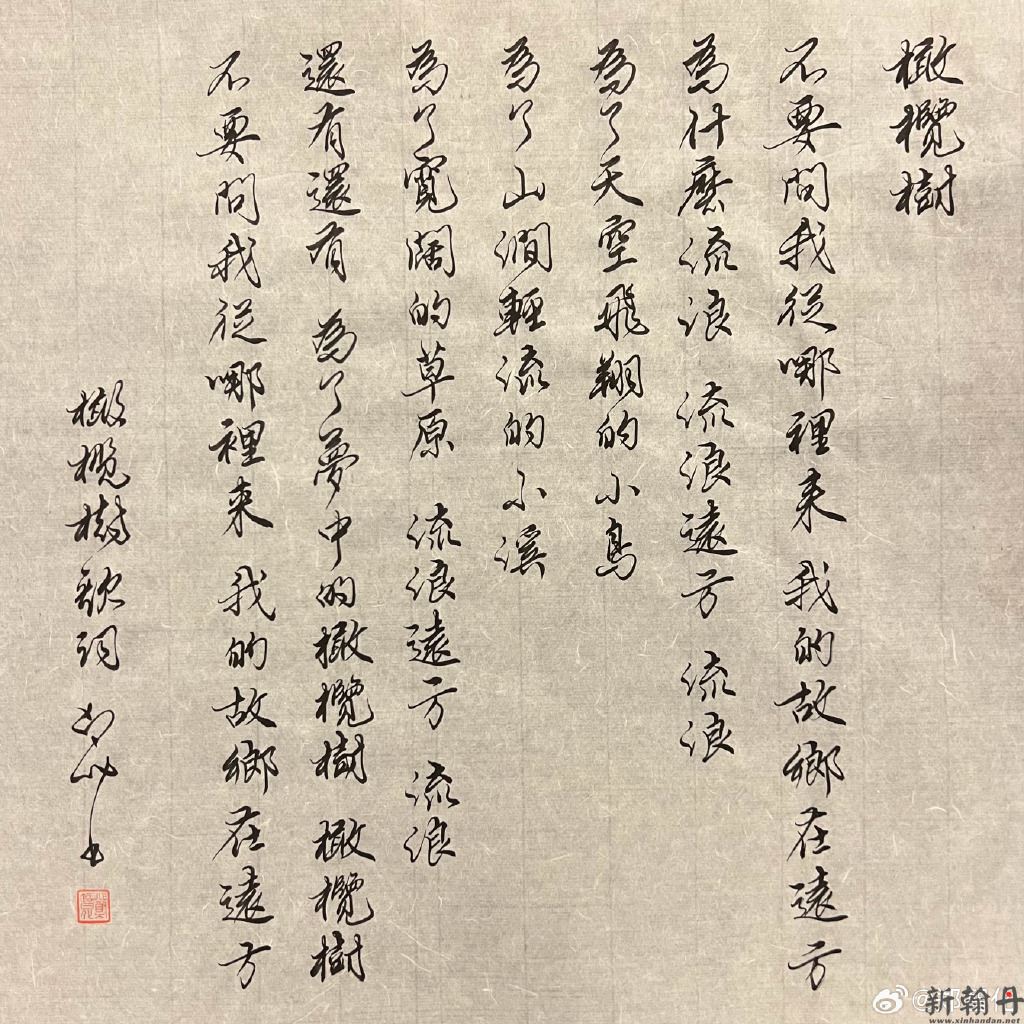 橄欖樹
不要問我從哪裡来 我的故鄉在遠方
為什麼流浪 流浪遠方 流浪
為了天空飛翔的小鳥
為了山澗輕流的小溪
為了寬闊的草原 流浪遠方 流浪
還有還有 為了夢中的橄欖樹 橄欖樹
不要問我從哪裡来 我的故鄉在遠方
橄欖樹歌詞
新翰丹
www.xinhandan.net